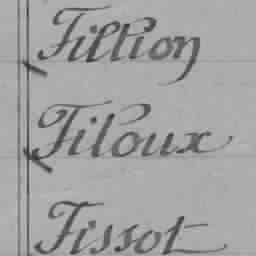 Fillion
Filoux
Fissot